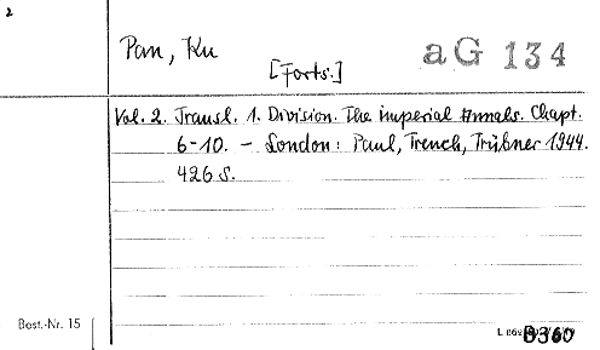 2
Pan, Ku
[Forts.]
aG 134
Vol. 2. Transl. 1. Division. The imperial Annals. Chapt.
6-10. - London: Paul, Trench, Trübner 1944.
426 S.
Best.-Nr. 15
B360